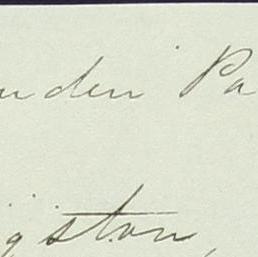 nden Pa
gston,